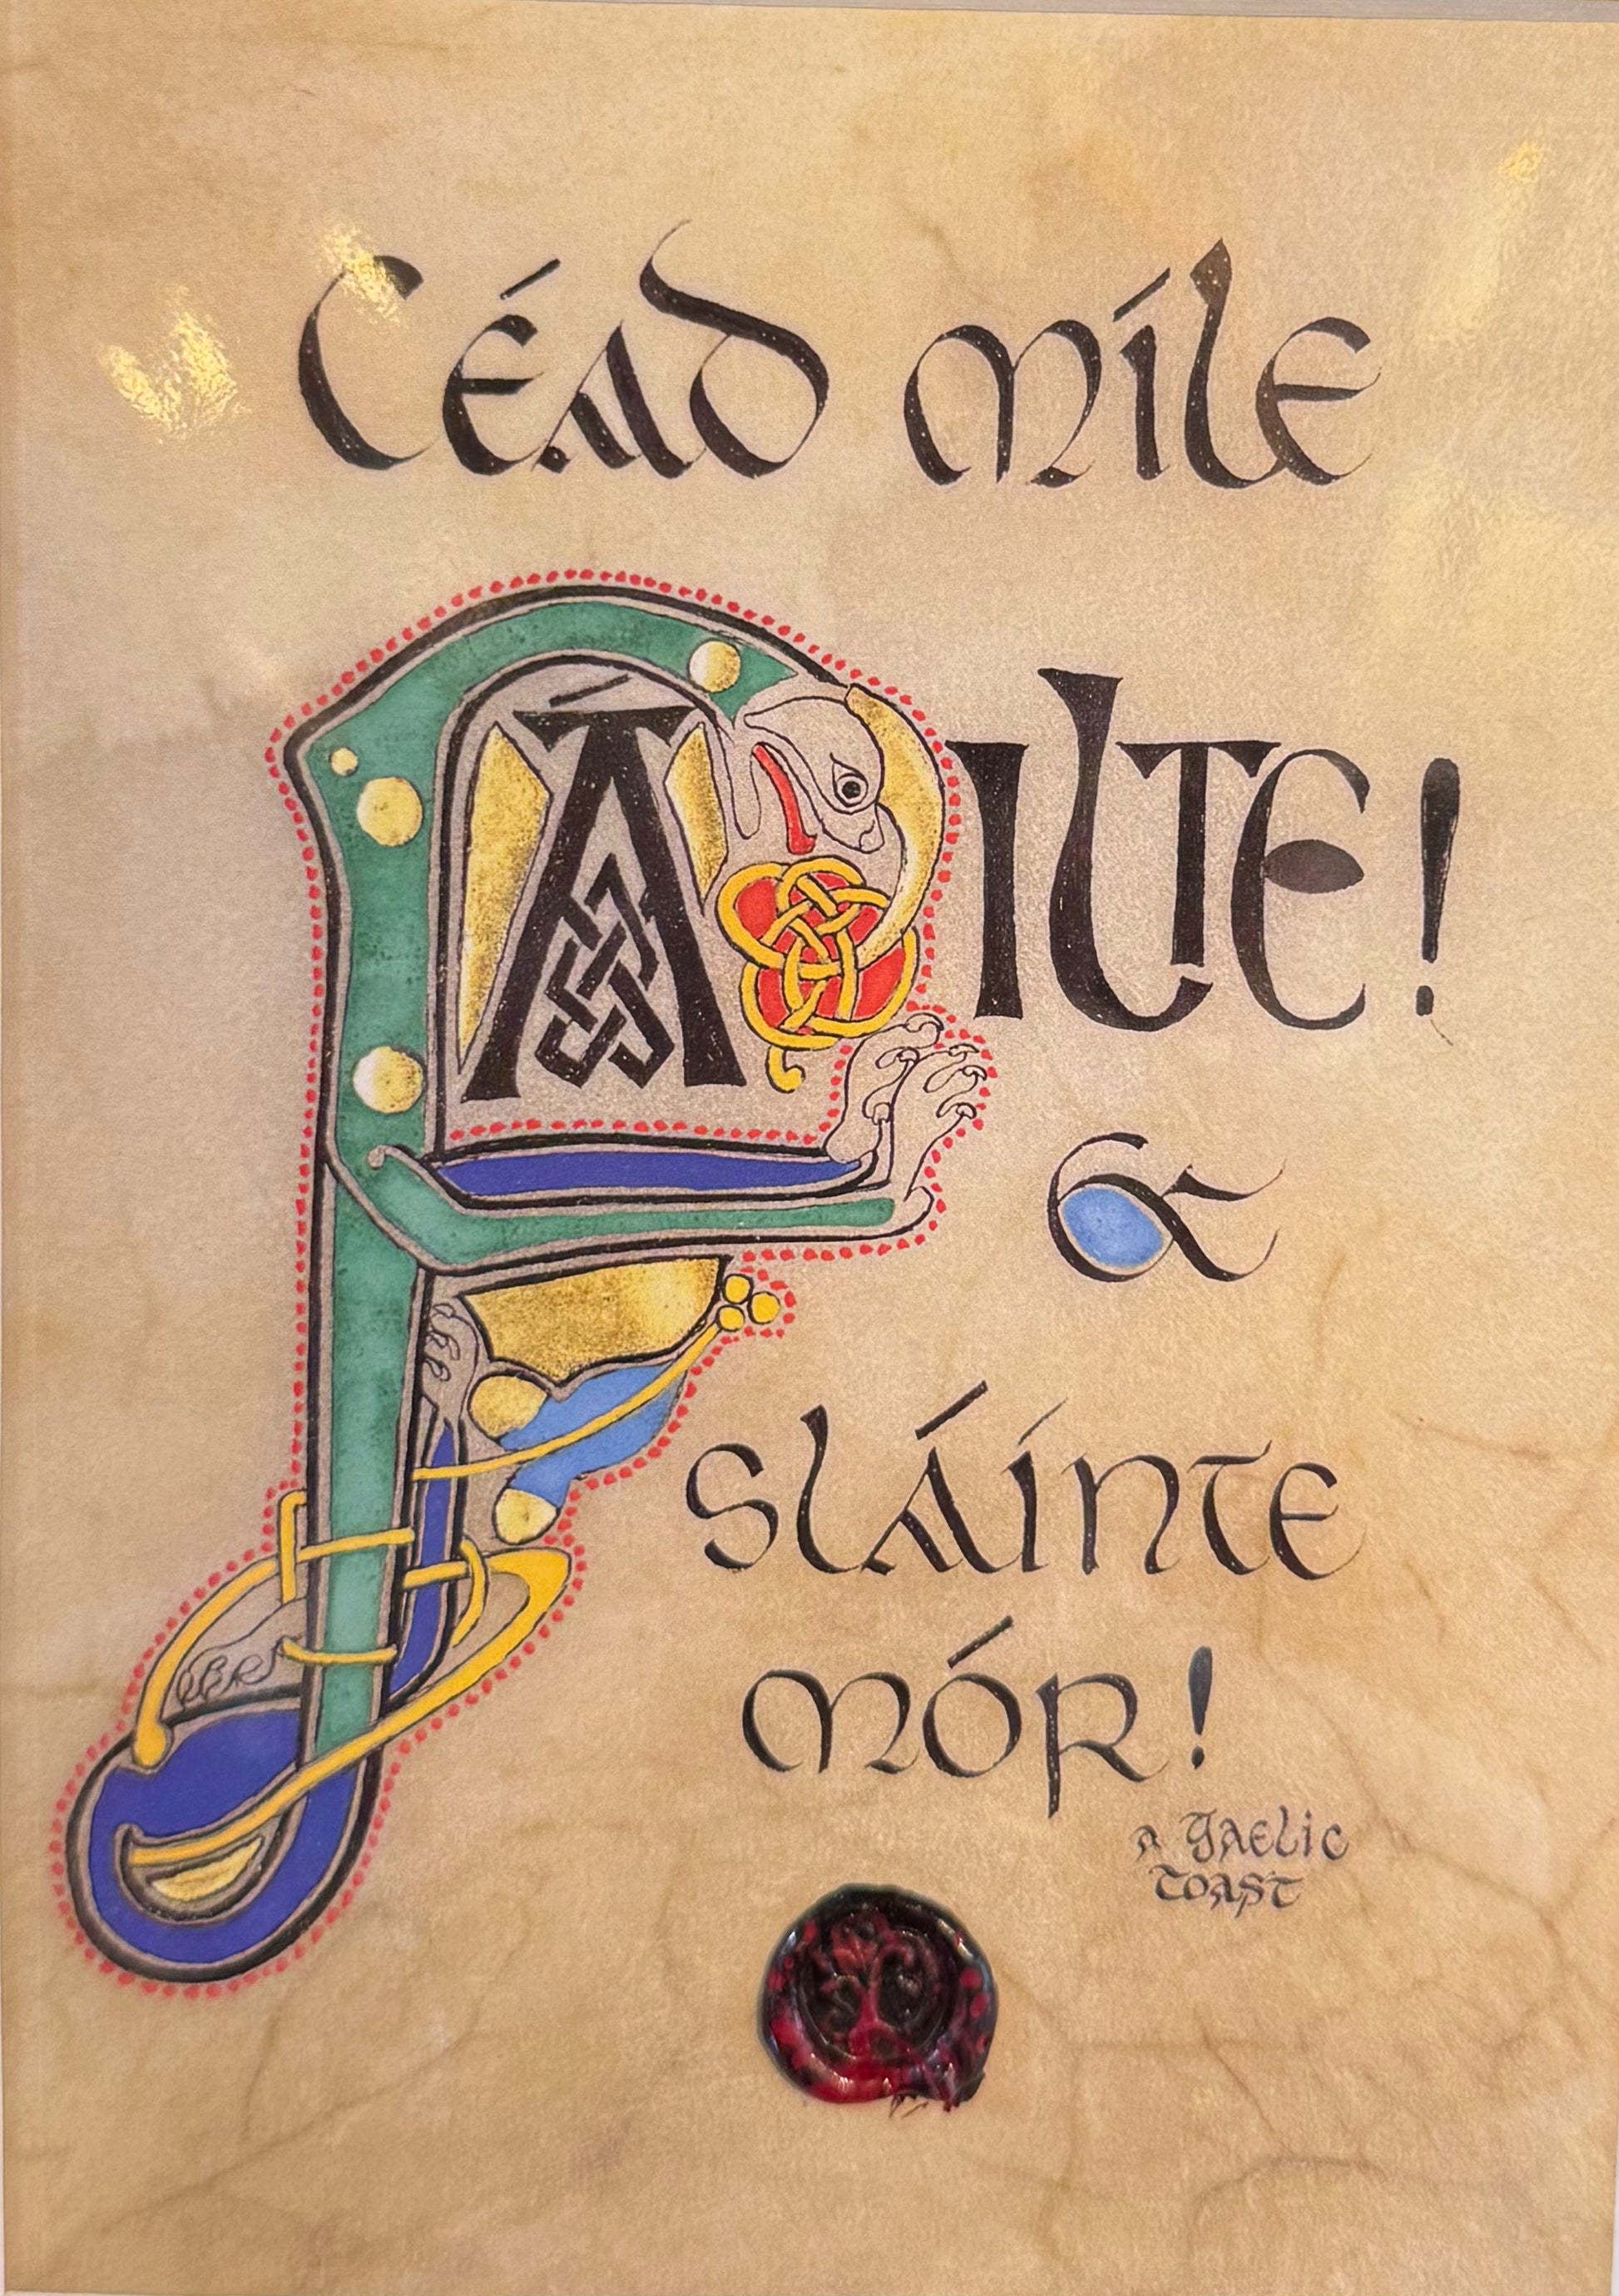 Céad míle
Fáilte!
&
sláinte
mór!
a Gaelic
toast